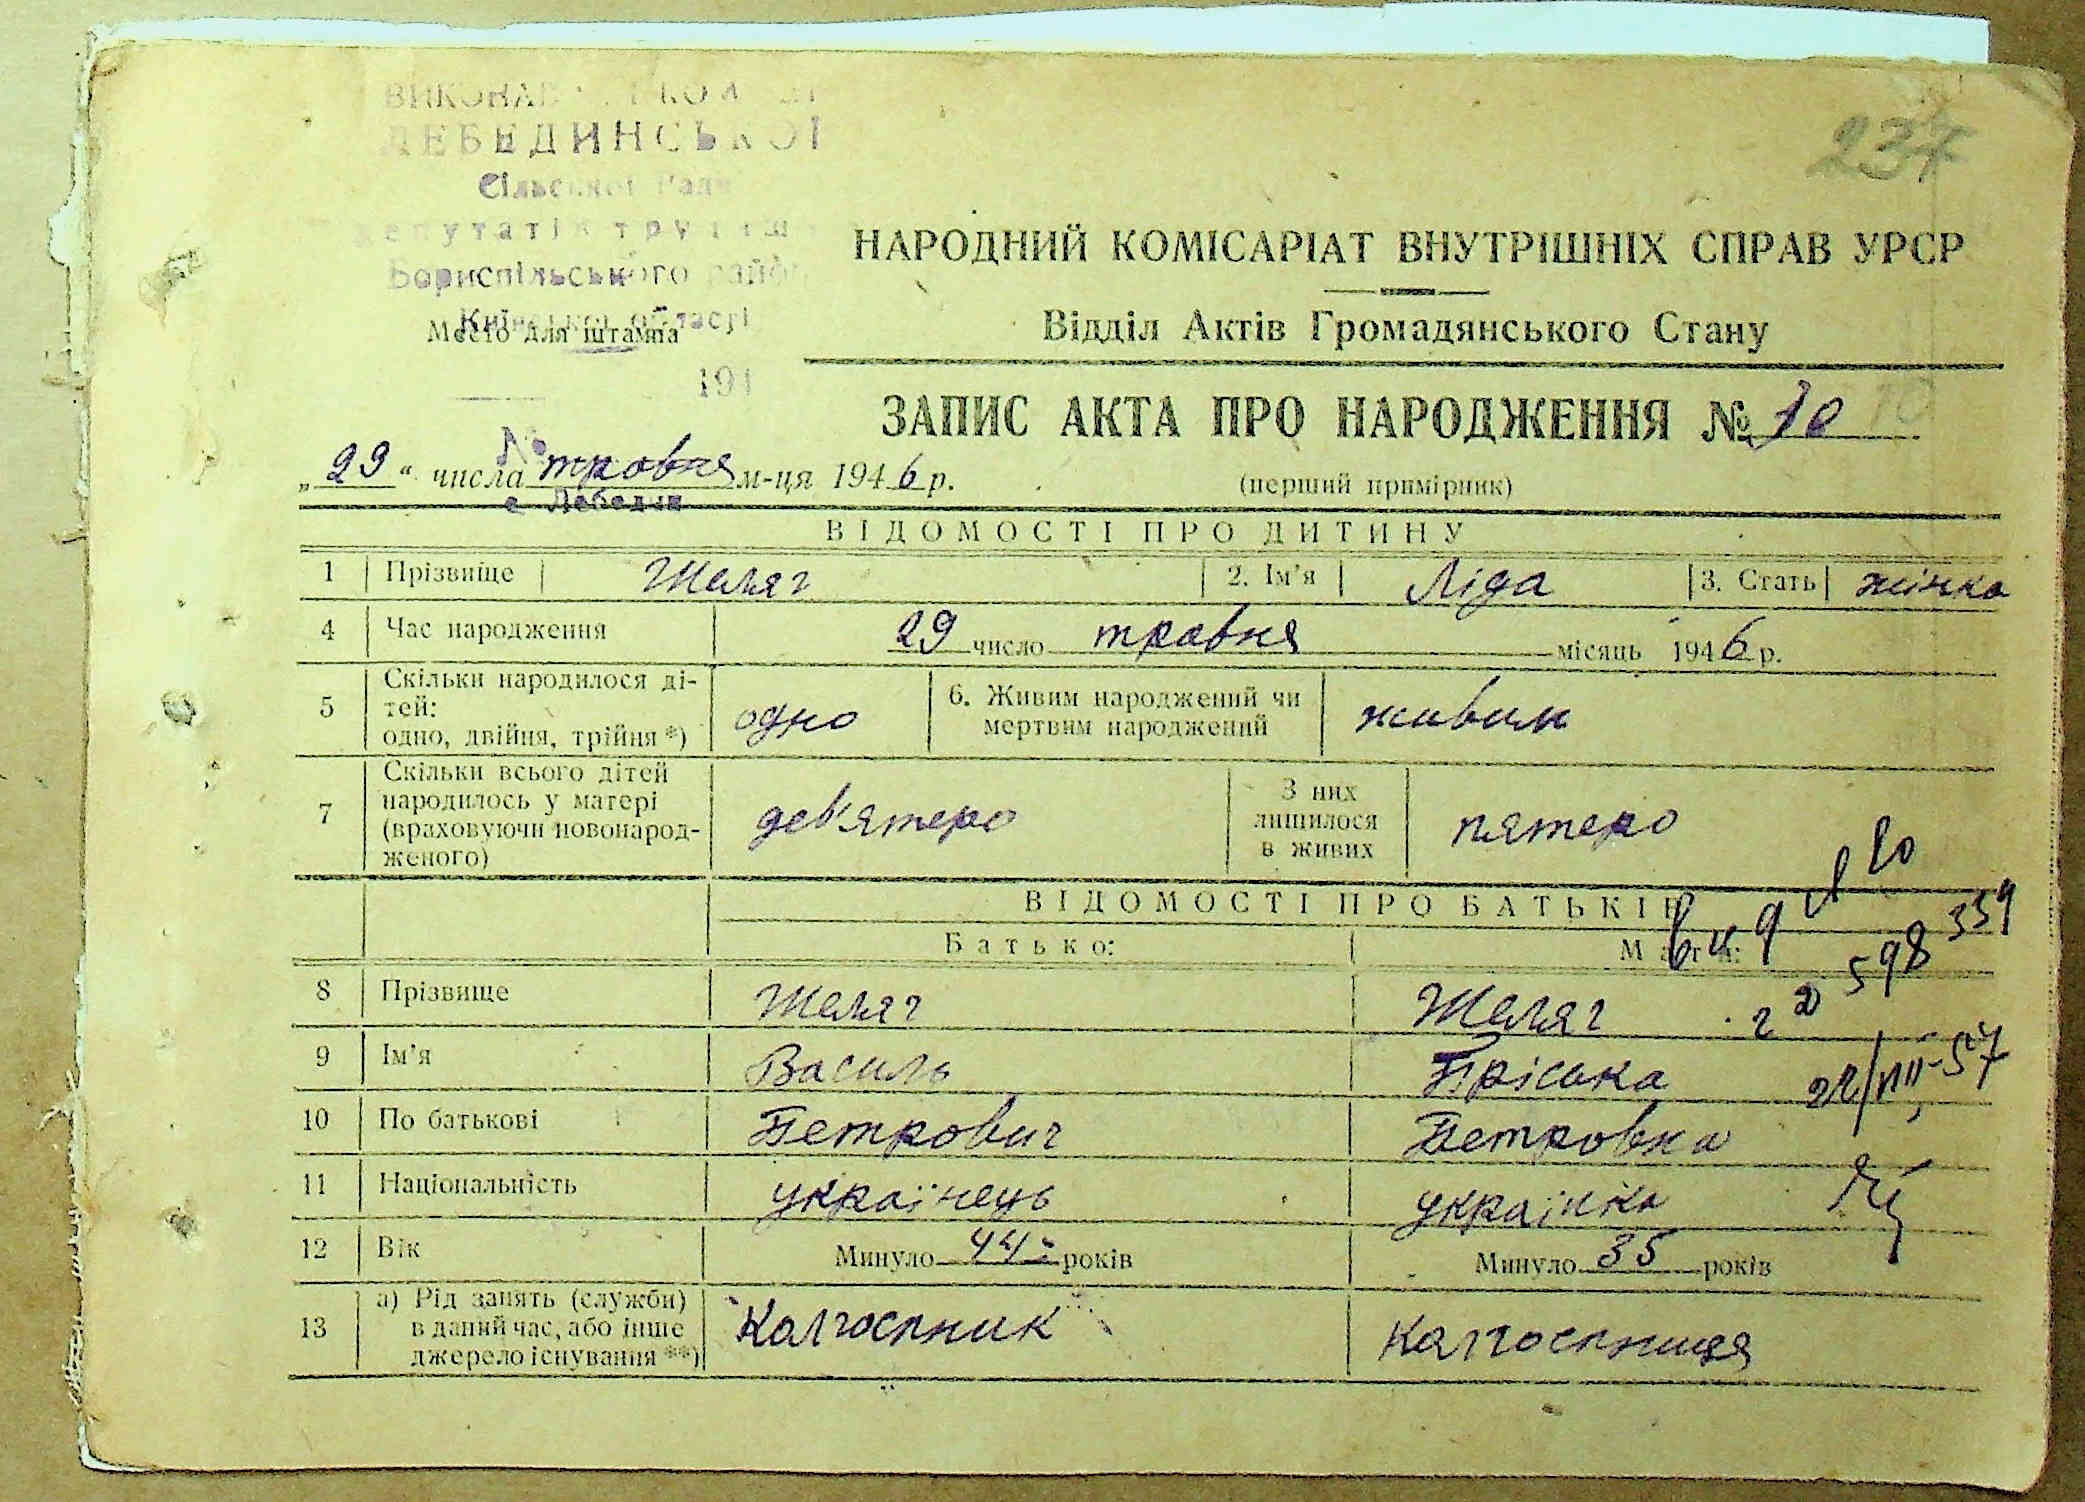 237
ЛЕБЕДИНСЬКОЇ
Сільської Ради
Бориспільського
Київської області
Место для штампа
191
НАРОДНИЙ КОМІСАРІАТ ВНУТРІШНІХ СПРАВ УРСР
Відділ Актів Громадянського Стану
ЗАПИС АКТА ПРО НАРОДЖЕННЯ № 10 10
(перший примірник)
№
„29“ числа травня м-ця 1946 р.
с Лебедин
ВІДОМОСТІ ПРО ДИТИНУ
1 Прізвище Желяг 2. Ім'я Ліда 3. Стать жінка
4 Час народження 29 число травня місяць 1946 р.
5 Скільки народилося ді-
тей:
одно, двійня, трійня *) одно 6. Живим народжений чи
мертвим народжений живим
7 Скільки всього дітей
народилось у матері
(враховуючи новонарод-
женого) дев'ятеро З них
лишилося
в живих пятеро
ВІДОМОСТІ ПРО БАТЬКІВ
Батько: Мати:
598 339
8 Прізвище Желяг Желяг
9 Ім'я Василь Пріська
22/VIII-57
10 По батькові Петрович Петровна
11 Національність українець українка
12 Вік Минуло 44 років Минуло 35 років
13 а) Рід занять (служби)
в даний час, або інше
джерело існування **) Колгоспник Колгоспниця